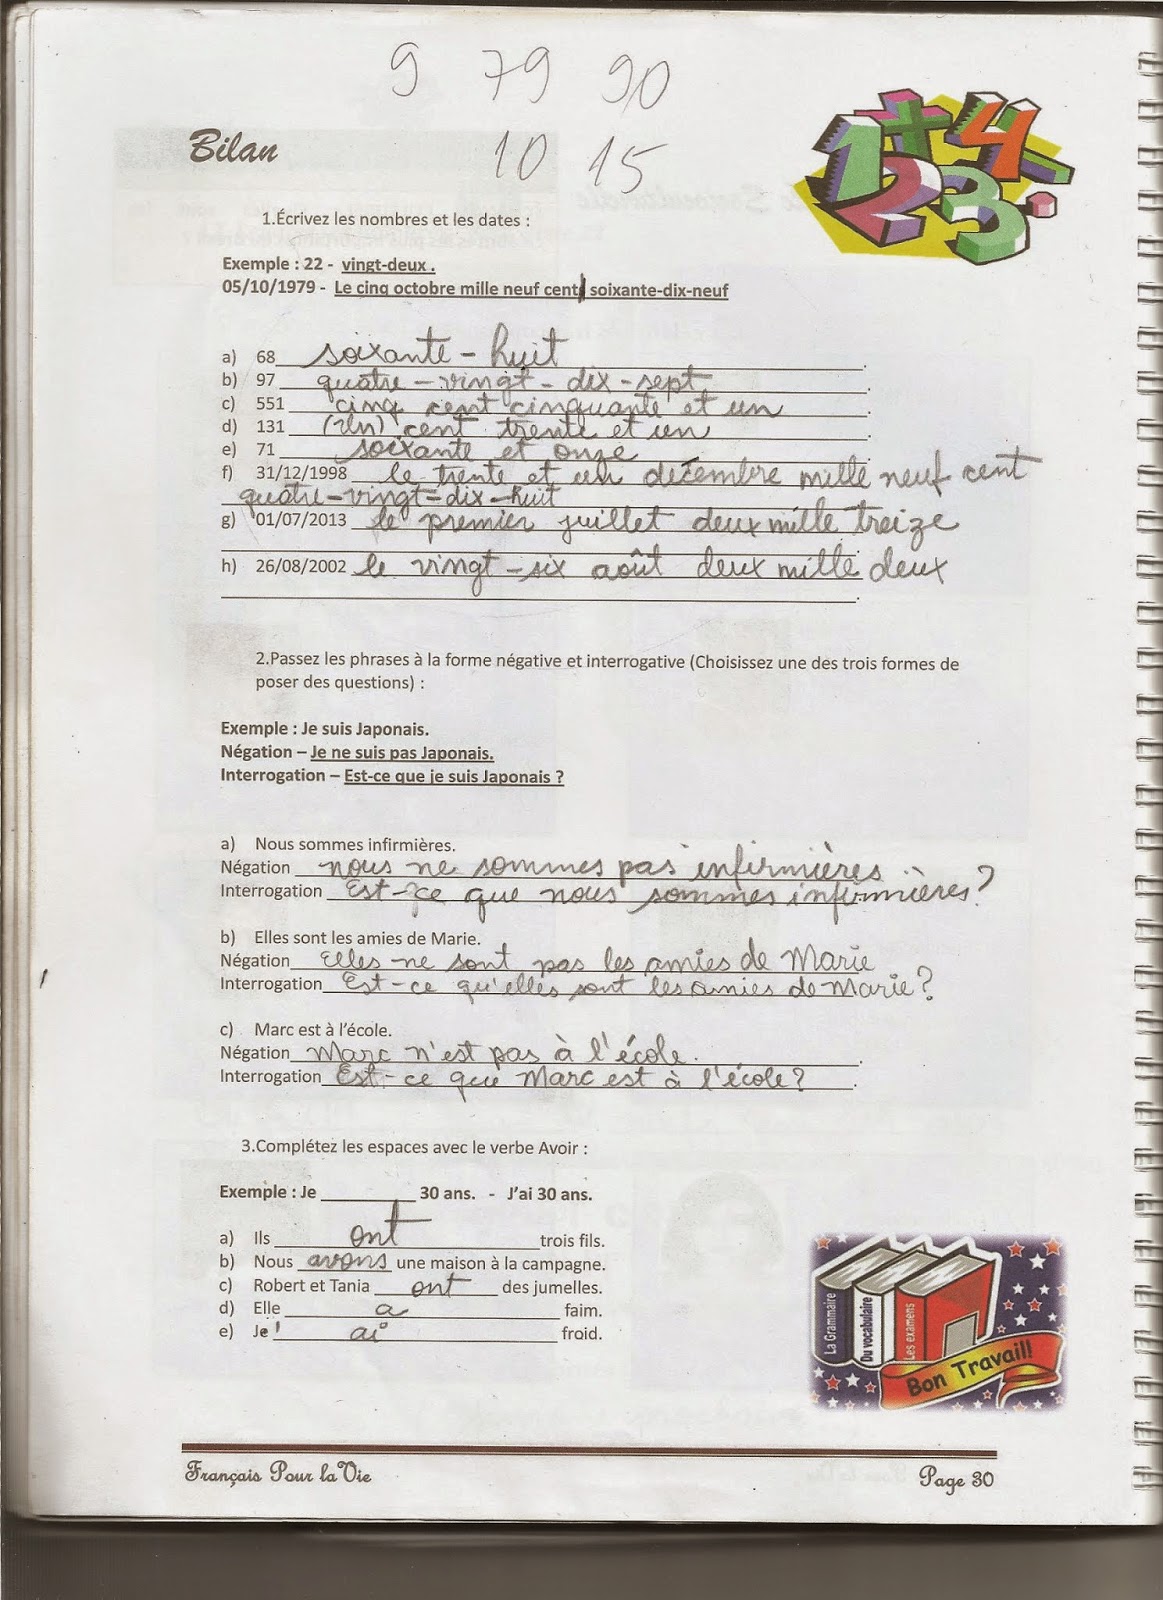 9 79 90
Bilan
10 15
1.Écrivez les nombres et les dates :
Exemple : 22 - vingt-deux .
05/10/1979 - Le cinq octobre mille neuf cent soixante-dix-neuf
a) 68 soixante - huit .
b) 97 quatre - vingt - dix - sept .
c) 551 cinq cent cinquante et un .
d) 131 (Un) cent trente et un .
e) 71 soixante et onze .
f) 31/12/1998 le trente et un décembre mille neuf cent
quatre-vingt-dix-huit
g) 01/07/2013 le premier juillet deux mille treize
.
h) 26/08/2002 le vingt-six août deux mille deux
.
2.Passez les phrases à la forme négative et interrogative (Choisissez une des trois formes de
poser des questions) :
Exemple : Je suis Japonais.
Négation – Je ne suis pas Japonais.
Interrogation – Est-ce que je suis Japonais ?
a) Nous sommes infirmières.
Négation nous ne sommes pas infirmières
Interrogation Est-ce que nous sommes infirmières?
b) Elles sont les amies de Marie.
Négation Elles ne sont pas les amies de Marie
Interrogation Est-ce qu'elles sont les amies de Marie?
c) Marc est à l'école.
Négation Marc n'est pas à l'école. .
Interrogation Est-ce que Marc est à l'école? .
3.Complétez les espaces avec le verbe Avoir :
Exemple : Je _________ 30 ans. - J'ai 30 ans.
a) Ils ont trois fils.
b) Nous avons une maison à la campagne.
c) Robert et Tania ont des jumelles.
d) Elle a faim.
e) Je' ai froid.
La Grammaire
Du vocabulaire
Les examens
Bon Travail!
Français Pour la Vie
Page 30